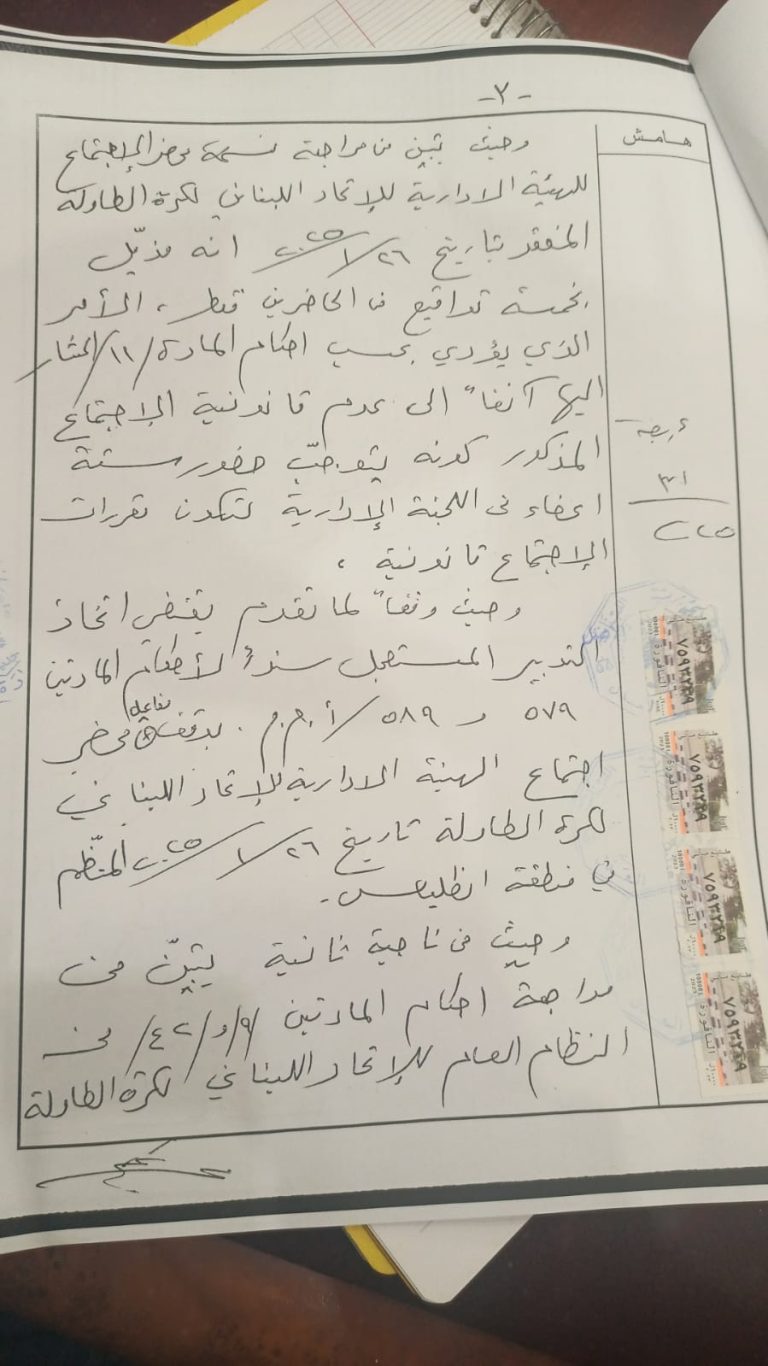 -٧-
هامش
وحيث يتبيّن من مراجعة نسخة محضر الإجتماع
للهيئة الادارية للإتحاد اللبناني لكرة الطاولة
المنعقد بتاريخ ٢٦/١/٢٠٢٥ انه مذيّل
بخمسة تواقيع من الحاضرين فقط، الأمر
الذي يؤدي بحسب احكام المادة /١١/ المشار
اليها آنفاً الى عدم قانونية الإجتماع
المذكور كونه يتوجّب حضور ستة
اعضاء من اللجنة الإدارية لتكون مقررات
الإجتماع قانونية ،
وحيث وفقاً لما تقدم يقتضي اتخاذ
التدبير المستعجل سنداً لأحكام المادتين
٥٧٩ و ٥٨٩ /أ.م.م. بوقف مفاعيل محضر
اجتماع الهيئة الادارية للإتحاد اللبناني
لكرة الطاولة تاريخ ٢٦/١/٢٠٢٥ المنظّم
في منطقة انطلياس.
وحيث من ناحية ثانية يتبيّن من
مراجعة احكام المادتين /٩/ و /٤٢/ من
النظام العام للإتحاد اللبناني لكرة الطاولة
٣١
٢٠٢٥
٧٥٩٣٢٤٩
٧٥٩٣٢٤٩
٧٥٩٣٢٤٩
٧٥٩٣٢٤٩